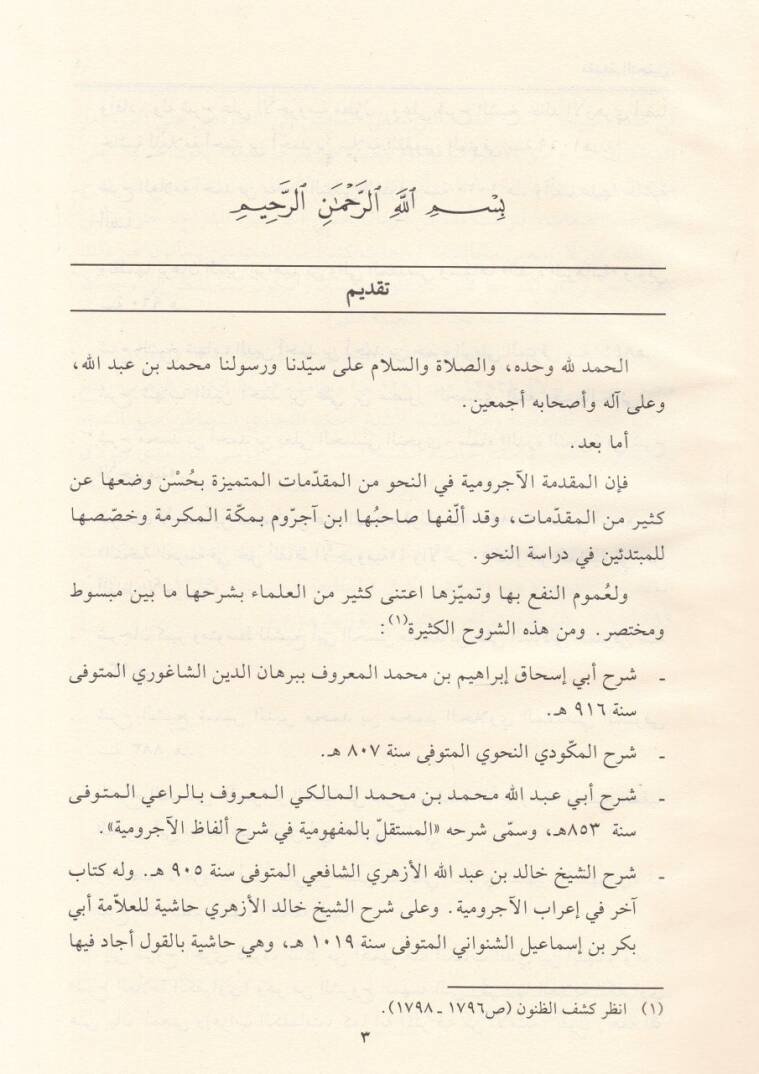 بِسْمِ ٱللَّهِ ٱلرَّحْمَٰنِ ٱلرَّحِيمِ
تقديم
الحمد لله وحده، والصلاة والسلام على سيّدنا ورسولنا محمد بن عبد الله،
وعلى آله وأصحابه أجمعين.
أما بعد.
فإن المقدمة الآجرومية في النحو من المقدّمات المتميزة بحُسْن وضعها عن
كثير من المقدّمات، وقد ألّفها صاحبُها ابن آجرّوم بمكّة المكرمة وخصّصها
للمبتدئين في دراسة النحو.
ولعُموم النفع بها وتميّزها اعتنى كثير من العلماء بشرحها ما بين مبسوط
ومختصر. ومن هذه الشروح الكثيرة(١):
ـ شرح أبي إسحاق إبراهيم بن محمد المعروف ببرهان الدين الشاغوري المتوفى
سنة ٩١٦ هـ.
ـ شرح المكّودي النحوي المتوفى سنة ٨٠٧ هـ.
ـ شرح أبي عبد الله محمد بن محمد المالكي المعروف بالراعي المتوفى
سنة ٨٥٣هـ، وسمّى شرحه «المستقلّ بالمفهومية في شرح ألفاظ الآجرومية».
ـ شرح الشيخ خالد بن عبد الله الأزهري الشافعي المتوفى سنة ٩٠٥ هـ. وله كتاب
آخر في إعراب الآجرومية. وعلى شرح الشيخ خالد الأزهري حاشية للعلاّمة أبي
بكر بن إسماعيل الشنواني المتوفى سنة ١٠١٩ هـ، وهي حاشية بالقول أجاد فيها
(١) انظر كشف الظنون (ص١٧٩٦ ـ ١٧٩٨).
٣